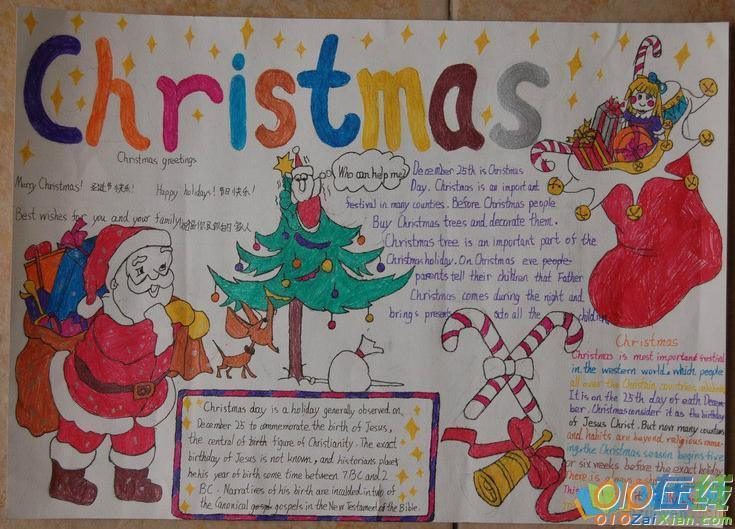 Christmas
Christmas greetings
Merry Christmas! 圣诞节快乐! Happy holidays! 节日快乐!
Best wishes for you and your family
Who can help me?
December 25th is Christmas
Day. Christmas is an important
festival in many countries. Before Christmas people
Buy Christmas trees and decorate them.
Christmas tree is an important part of the
Christmas holiday. On Christmas eve, people
parents tell their children that Father
Christmas comes during the night and
brings presents to all the children
Christmas day is a holiday generally observed on
December 25 to commemorate the birth of Jesus,
the central of birth figure of Christianity. The exact
birthday of Jesus is not known, and historians places
he his year of birth some time between 7 BC and 2
BC. Narratives of his birth are included in two of
the Canonical gospel gospels in the New Testament of the Bible.
Christmas
Christmas is most important festival
in the western world. which people
all over the Christain countries celebrate
It is on the 25th day of each Decem
ber. Christmas consider it as the birthday
of Jesus Christ. But now many countries
and habits are beyond religious mea
ning, the Christmas season begins five
or six weeks before the exact holiday
There is always a sh
This
010在线
010ZaiXian.com